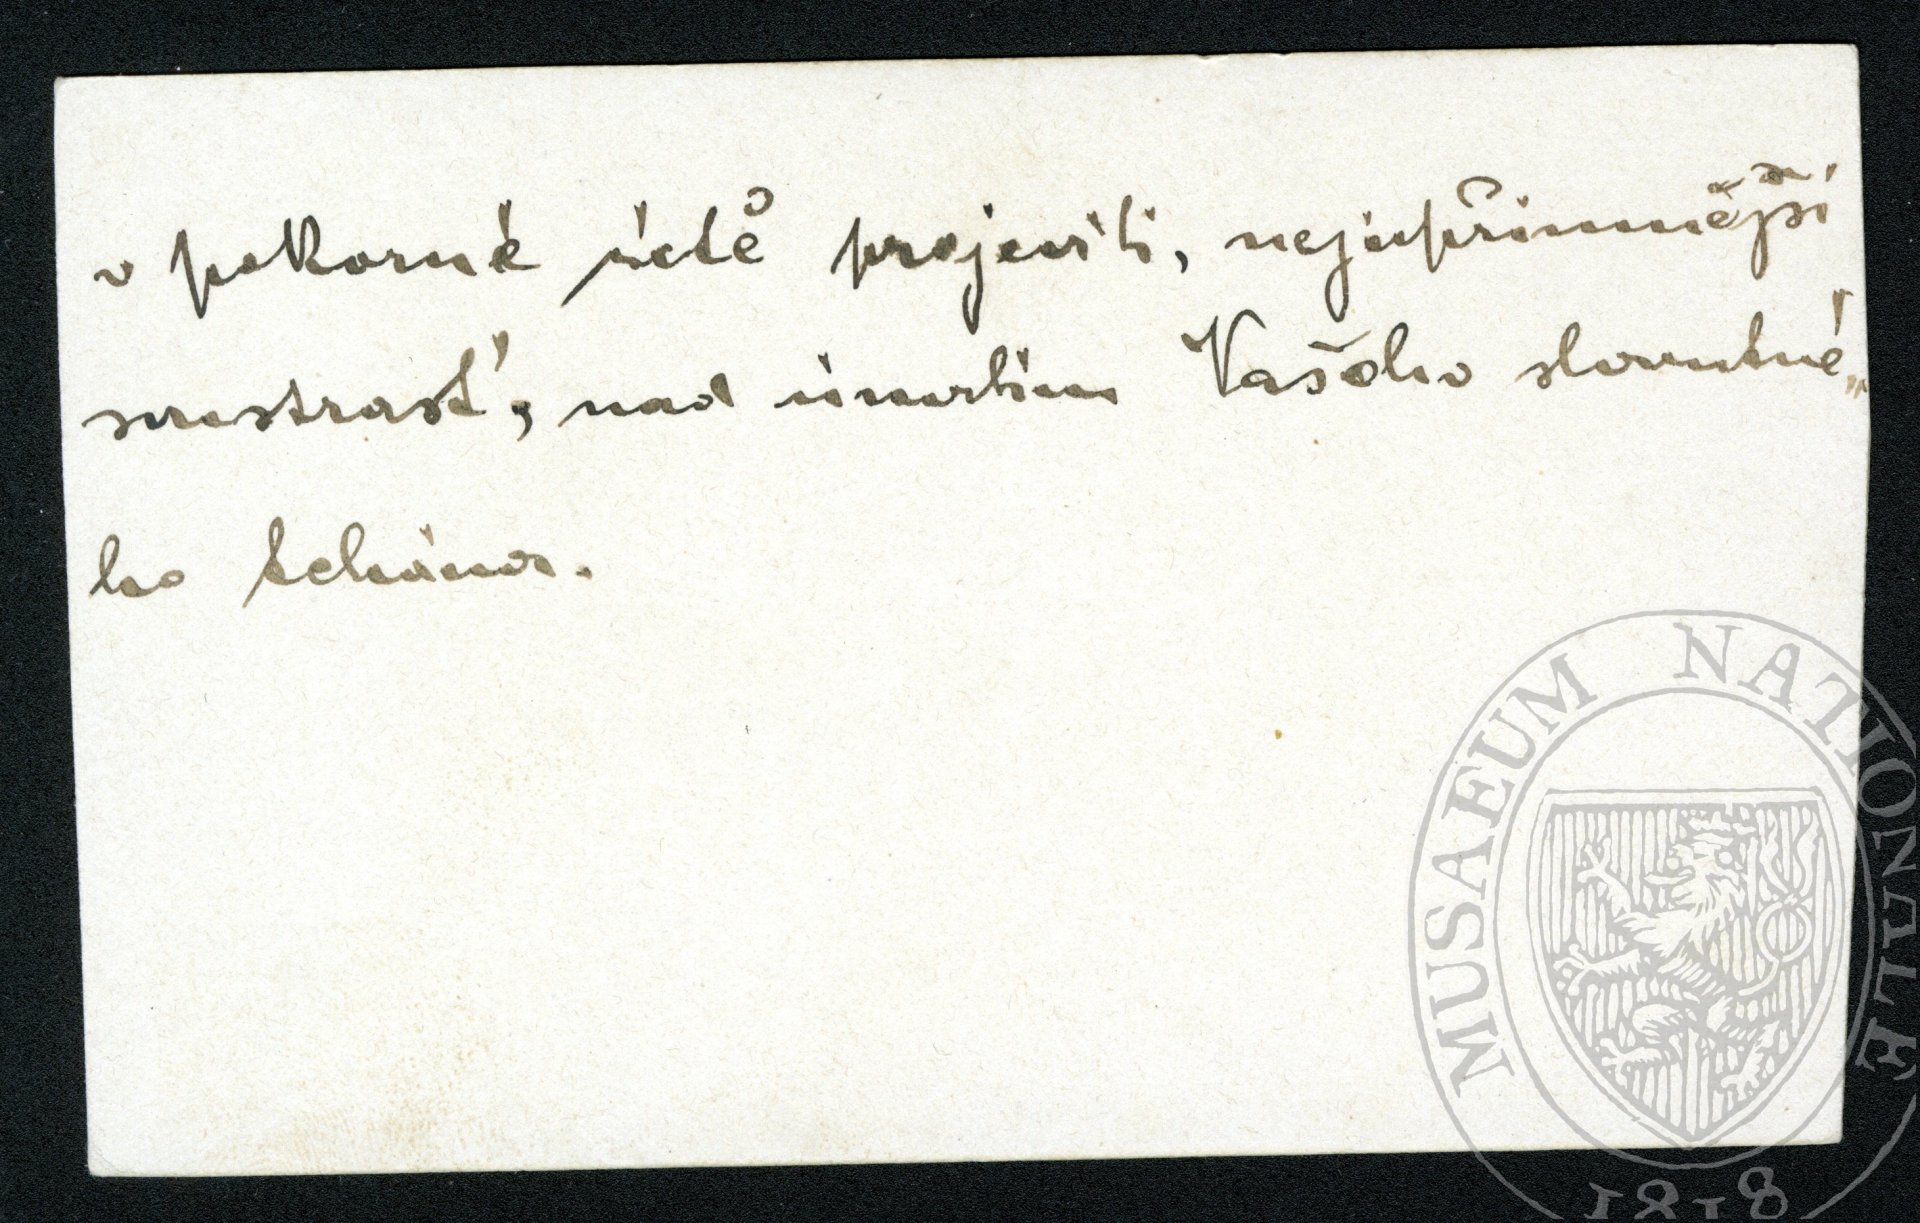 v pokorné úctě projeviti, nejupřímnější
soustrast', nad úmrtím Vašeho slovutné„
ho tchána.
MUSAEUM NATIONALE
1818